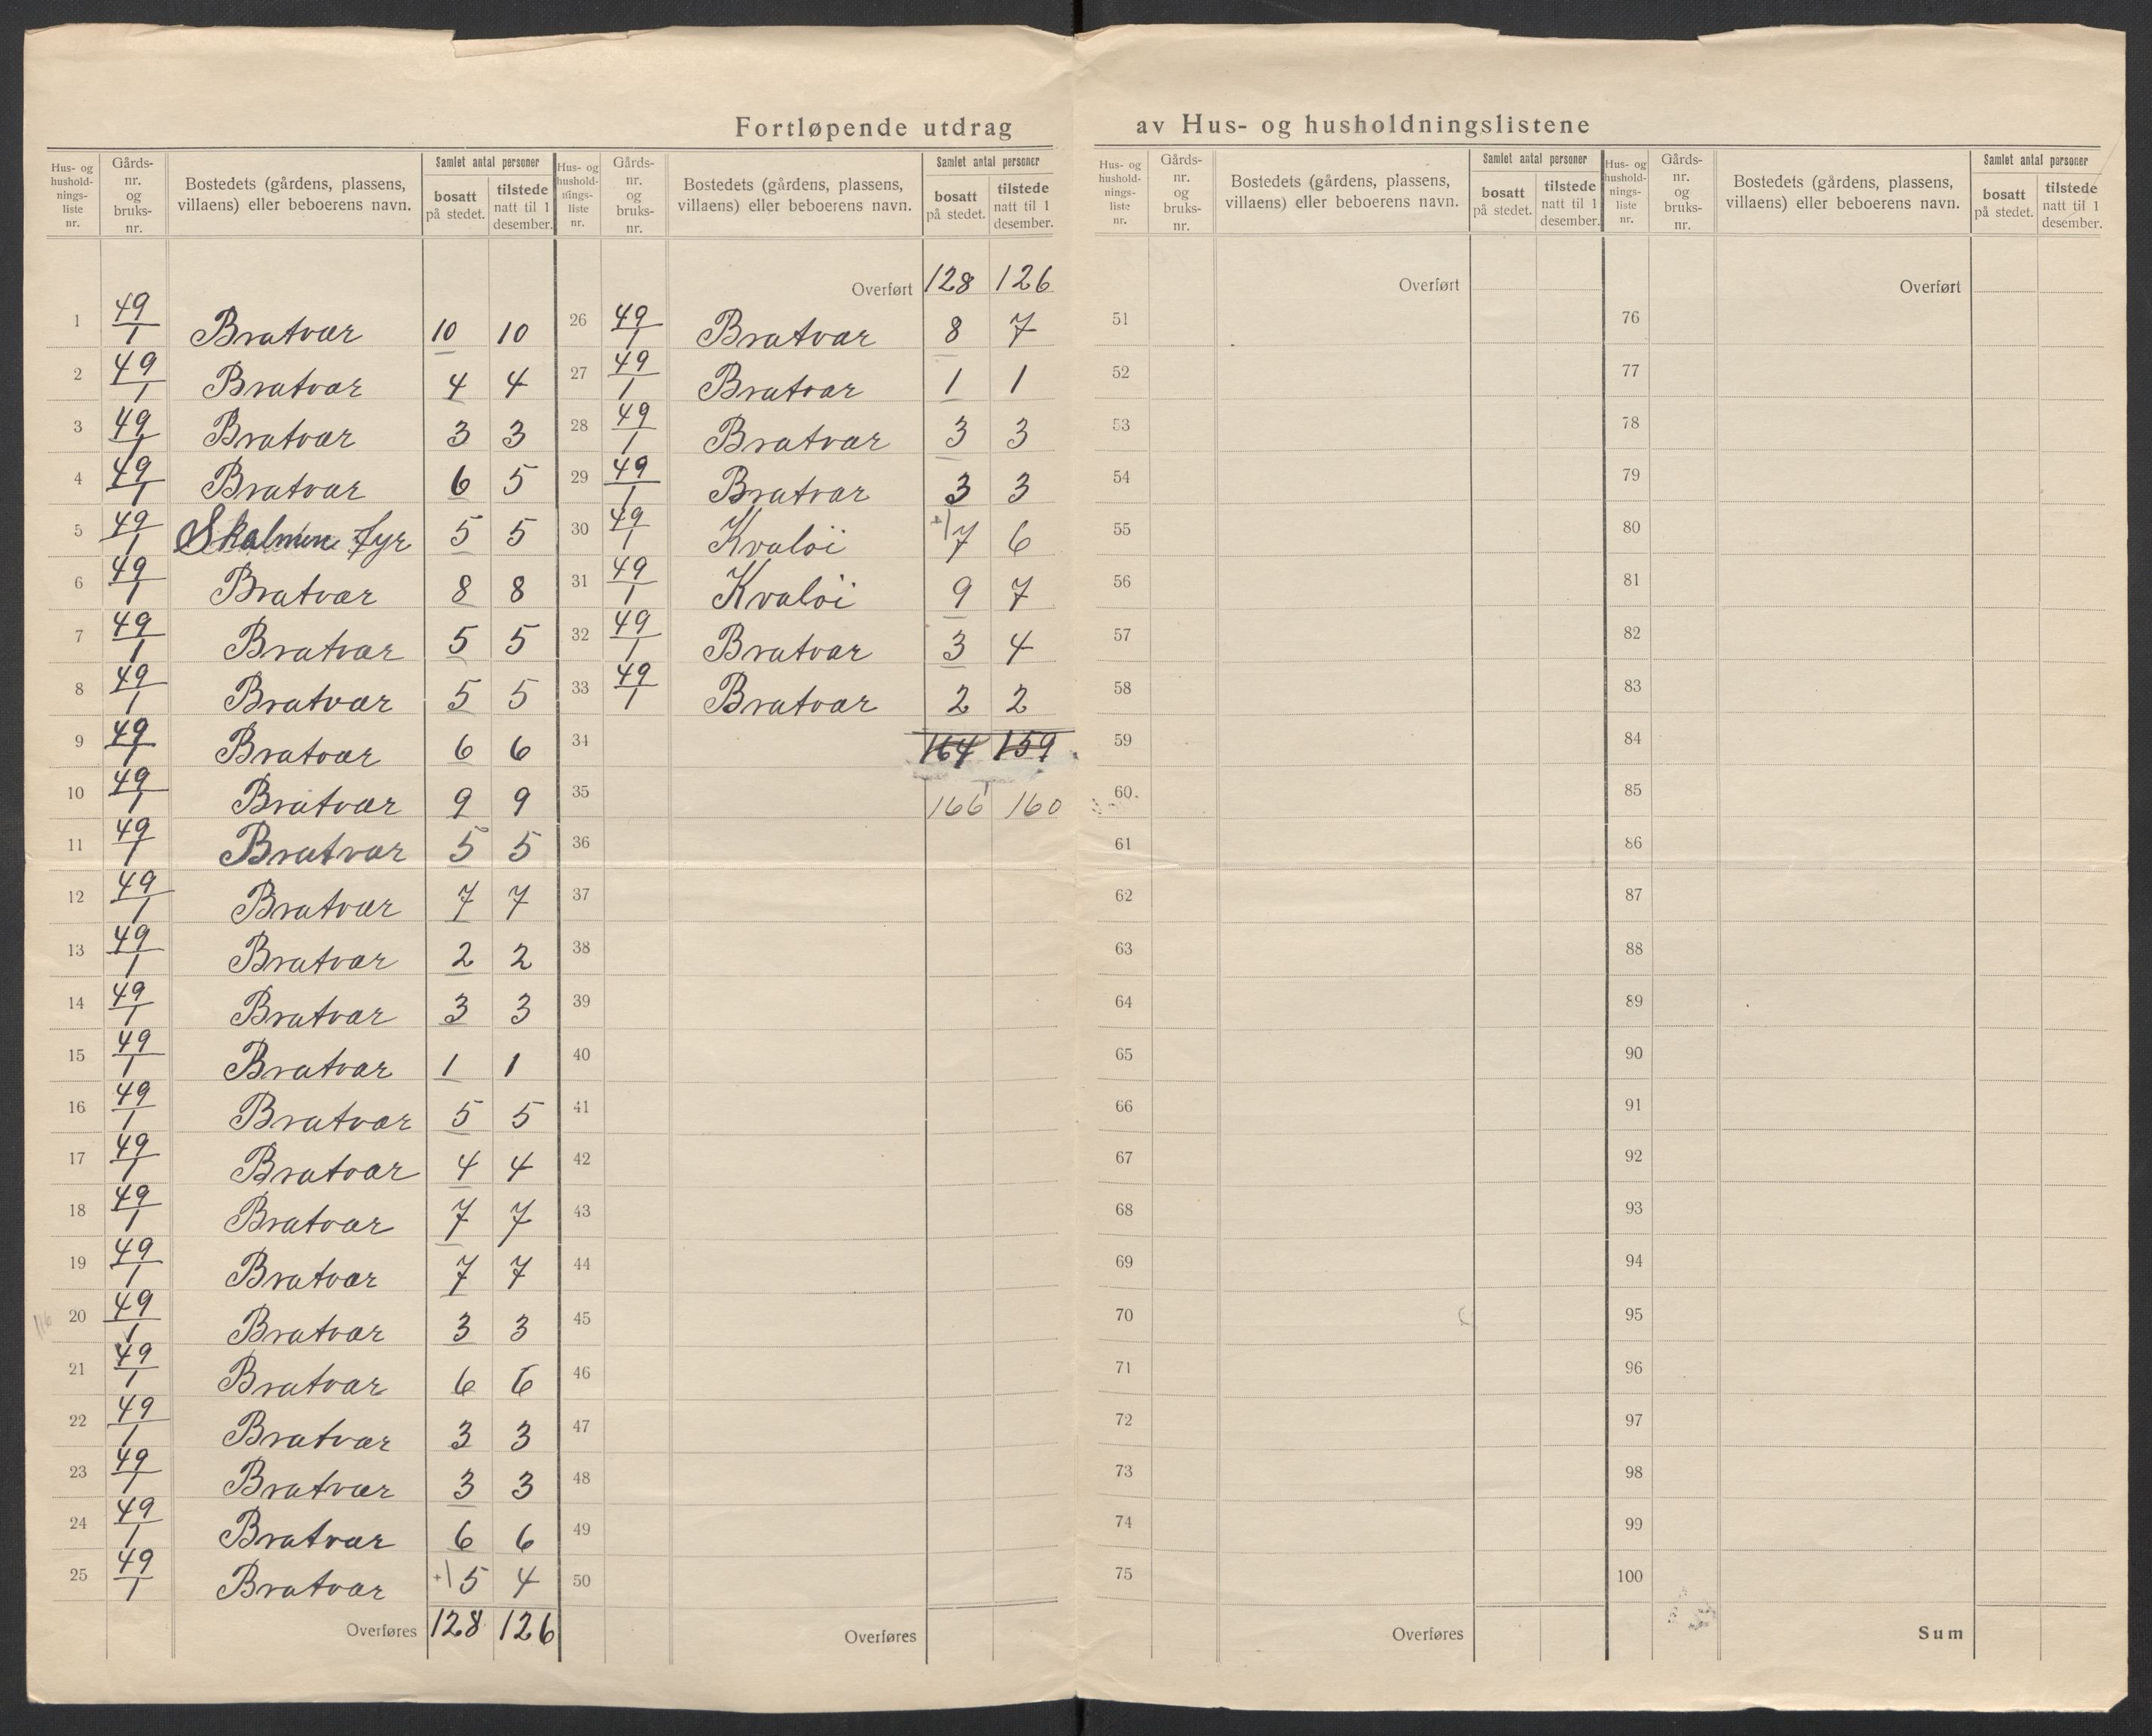 Fortløpende utdrag av Hus- og husholdningslistene
Hus- og hushold-nings-liste nr. Gårds-nr. og bruks-nr. Bostedets (gårdens, plassens, villaens) eller beboerens navn. Samlet antal personer bosatt på stedet. tilstede natt til 1 desember.
1 49/1 Bratvær 10 10
2 49/1 Bratvær 4 4
3 49/1 Bratvær 3 3
4 49/1 Bratvær 6 5
5 49/1 Skalmen Fyr 5 5
6 49/1 Bratvær 8 8
7 49/1 Bratvær 5 5
8 49/1 Bratvær 5 5
9 49/1 Bratvær 6 6
10 49/1 Bratvær 9 9
11 49/1 Bratvær 5 5
12 49/1 Bratvær 7 7
13 49/1 Bratvær 2 2
14 49/1 Bratvær 3 3
15 49/1 Bratvær 1 1
16 49/1 Bratvær 5 5
17 49/1 Bratvær 4 4
18 49/1 Bratvær 7 7
19 49/1 Bratvær 7 7
116 20 49/1 Bratvær 3 3
21 49/1 Bratvær 6 6
22 49/1 Bratvær 3 3
23 49/1 Bratvær 3 3
24 49/1 Bratvær 6 6
25 49/1 Bratvær +1 5 4
Overføres 128 126
Hus- og hushold-nings-liste nr. Gårds-nr. og bruks-nr. Bostedets (gårdens, plassens, villaens) eller beboerens navn. Samlet antal personer bosatt på stedet. tilstede natt til 1 desember.
Overført 128 126
26 49/1 Bratvær 8 7
27 49/1 Bratvær 1 1
28 49/1 Bratvær 3 3
29 49/1 Bratvær 3 3
30 49/1 Kvaløi +1 7 6
31 49/1 Kvaløi 9 7
32 49/1 Bratvær 3 4
33 49/1 Bratvær 2 2
34 164 159
35 166 160
36
37
38
39
40
41
42
43
44
45
46
47
48
49
50
Overføres
Hus- og hushold-nings-liste nr. Gårds-nr. og bruks-nr. Bostedets (gårdens, plassens, villaens) eller beboerens navn. Samlet antal personer bosatt på stedet. tilstede natt til 1 desember.
Overført
51
52
53
54
55
56
57
58
59
60
61
62
63
64
65
66
67
68
69
70
71
72
73
74
75
Overføres
Hus- og hushold-nings-liste nr. Gårds-nr. og bruks-nr. Bostedets (gårdens, plassens, villaens) eller beboerens navn. Samlet antal personer bosatt på stedet. tilstede natt til 1 desember.
Overført
76
77
78
79
80
81
82
83
84
85
86
87
88
89
90
91
92
93
94
95
96
97
98
99
100
Sum